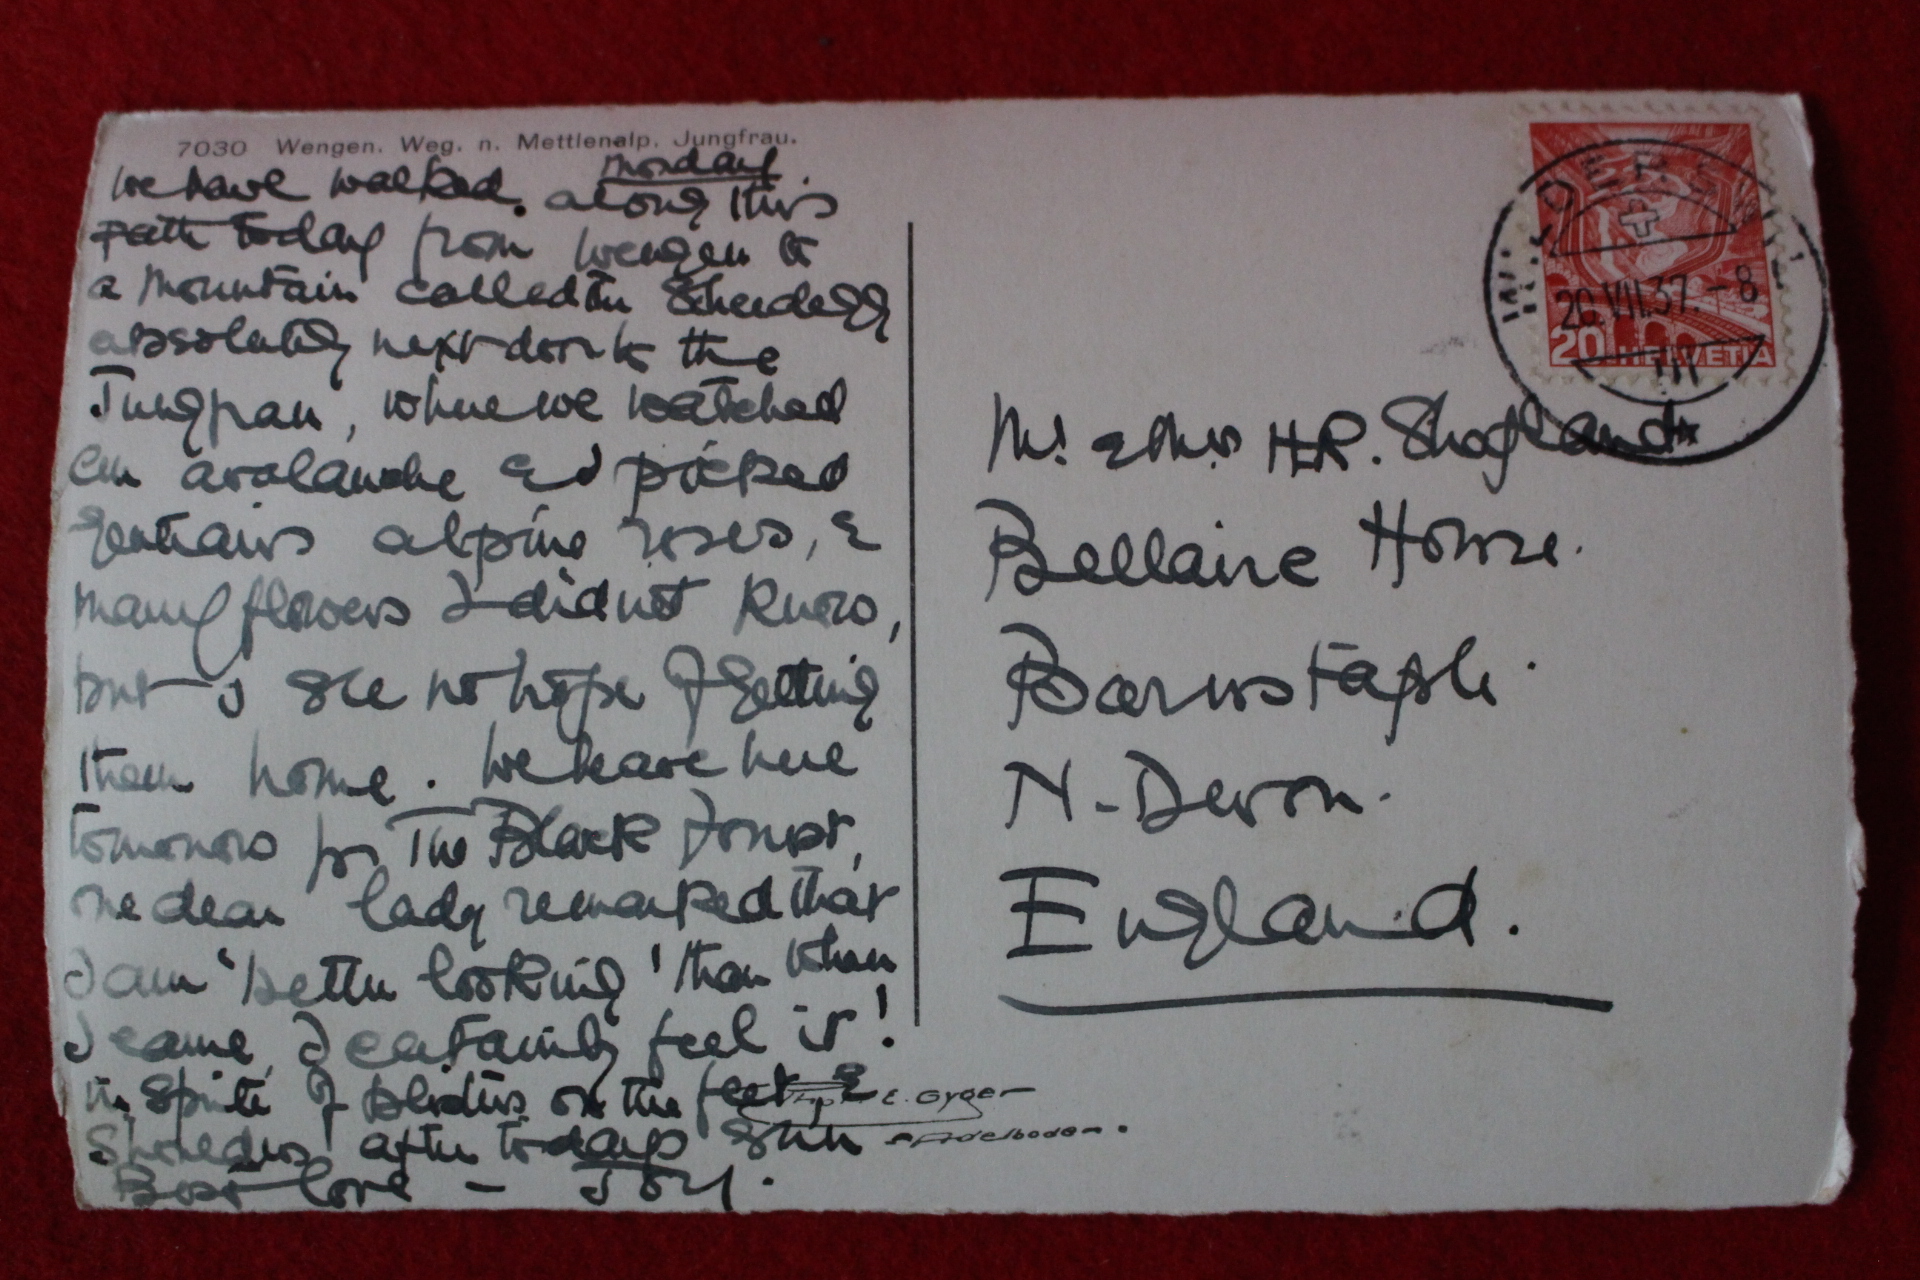 7030 Wengen. Weg. n. Mettlenalp. Jungfrau.
Monday
We have walked along this
path today from Wengen to
a mountain called the Scheidegg
absolutely next door to the
Jungfrau, where we watched
an avalanche & picked
gentians alpine roses, &
many flowers I did not know,
but I see no hope of getting
them home. We leave here
tomorrow for The Black Forest,
one dear lady remarked that
I am 'better looking' than when
I came, I certainly feel it!
in spite of blisters on the feet, &
shoulders after todays sun
Best love - Joy.
WILDERSWIL
20.VII.37.-8
20 HELVETIA
Mr & Mrs H.R. Shogland
Bellaire House.
Barnstaple.
N-Devon.
England.
E. Gyger
Adelboden.